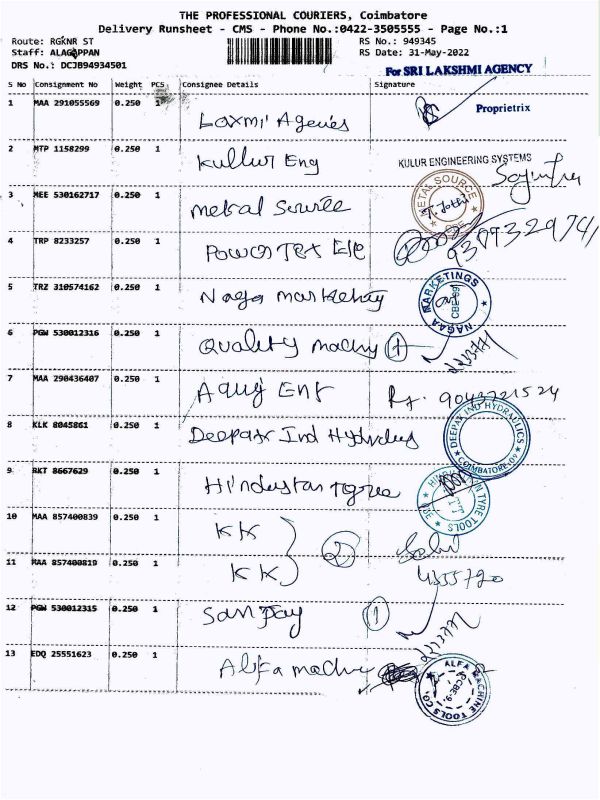 THE PROFESSIONAL COURIERS, Coimbatore
Delivery Runsheet - CMS - Phone No.:0422-3505555 - Page No.:1
Route: RGKNR ST RS No.: 949345
Staff: ALAGAPPAN RS Date: 31-May-2022
DRS No.: DCJB94934501
For SRI LAKSHMI AGENCY
S No Consignment No Weight PCS Consignee Details Signature
1 MAA 291055569 0.250 1 Laxmi Agencies
Proprietrix
2 MTP 1158299 0.250 1 Kullur Eng
KULUR ENGINEERING SYSTEMS
3 MEE 530162717 0.250 1 Metal Source
METAL SOURCE
4 TRP 8233257 0.250 1 Power Tex Ele
5 TRZ 310574162 0.250 1 Naga Marketing
NAGAA MARKETINGS
6 PGW 530012316 0.250 1 Quality machy 1
7 MAA 290436407 0.250 1 Ent
9043721524
8 KLK 8045861 0.250 1 Deepak Ind Hydrulics
DEEPAK IND HYDRAULICS
COIMBATORE-09
9 BKT 8667629 0.250 1 Hindustan Tyre
TYRE TOOLS
10 MAA 857400839 0.250 1 KK
2
11 MAA 857400819 0.250 1 KK
12 PGW 530012315 0.250 1 Sanjay 1
13 EDQ 25551623 0.250 1 Alfa machy
ALFA MACHINE TOOLS CO.